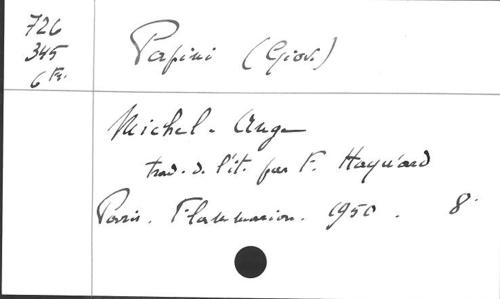 726
345
6 Fr.
Papini (Giov.)
Michel-Ange
trad. d. l'it. par F. Hayward
Paris. Flammarion. 1950. 8°